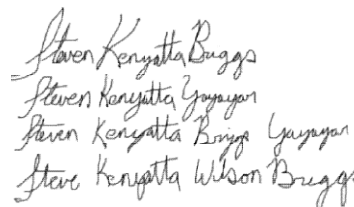 Steven Kenyatta Briggs
Steven Kenyatta Yayayan
Steven Kenyatta Briggs Yayayan
Steve Kenyatta Wilson Briggs